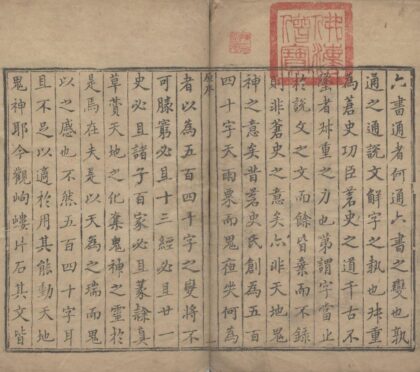 六書通者何通六書之變也孰
通之通說文解字之執也叔重
為蒼史功臣蒼史之道千古不
墜者叔重之力也第謂字當止
於說文之文而餘皆棄而不錄
則非蒼史之意矣亦非天地鬼
神之意矣昔蒼史氏創為五百
四十字天雨粟而鬼夜哭何為
原序
者以為五百四十字之變將不
可勝窮必且十三經必且廿一
史必且諸子百家必且篆隸真
草贊天地之化棄鬼神之靈於
是焉在夫是以天為之瑞而鬼
以之感也不然五百四十字耳
且不足以適於用其能動天地
鬼神耶今觀岣嶁片石其文皆